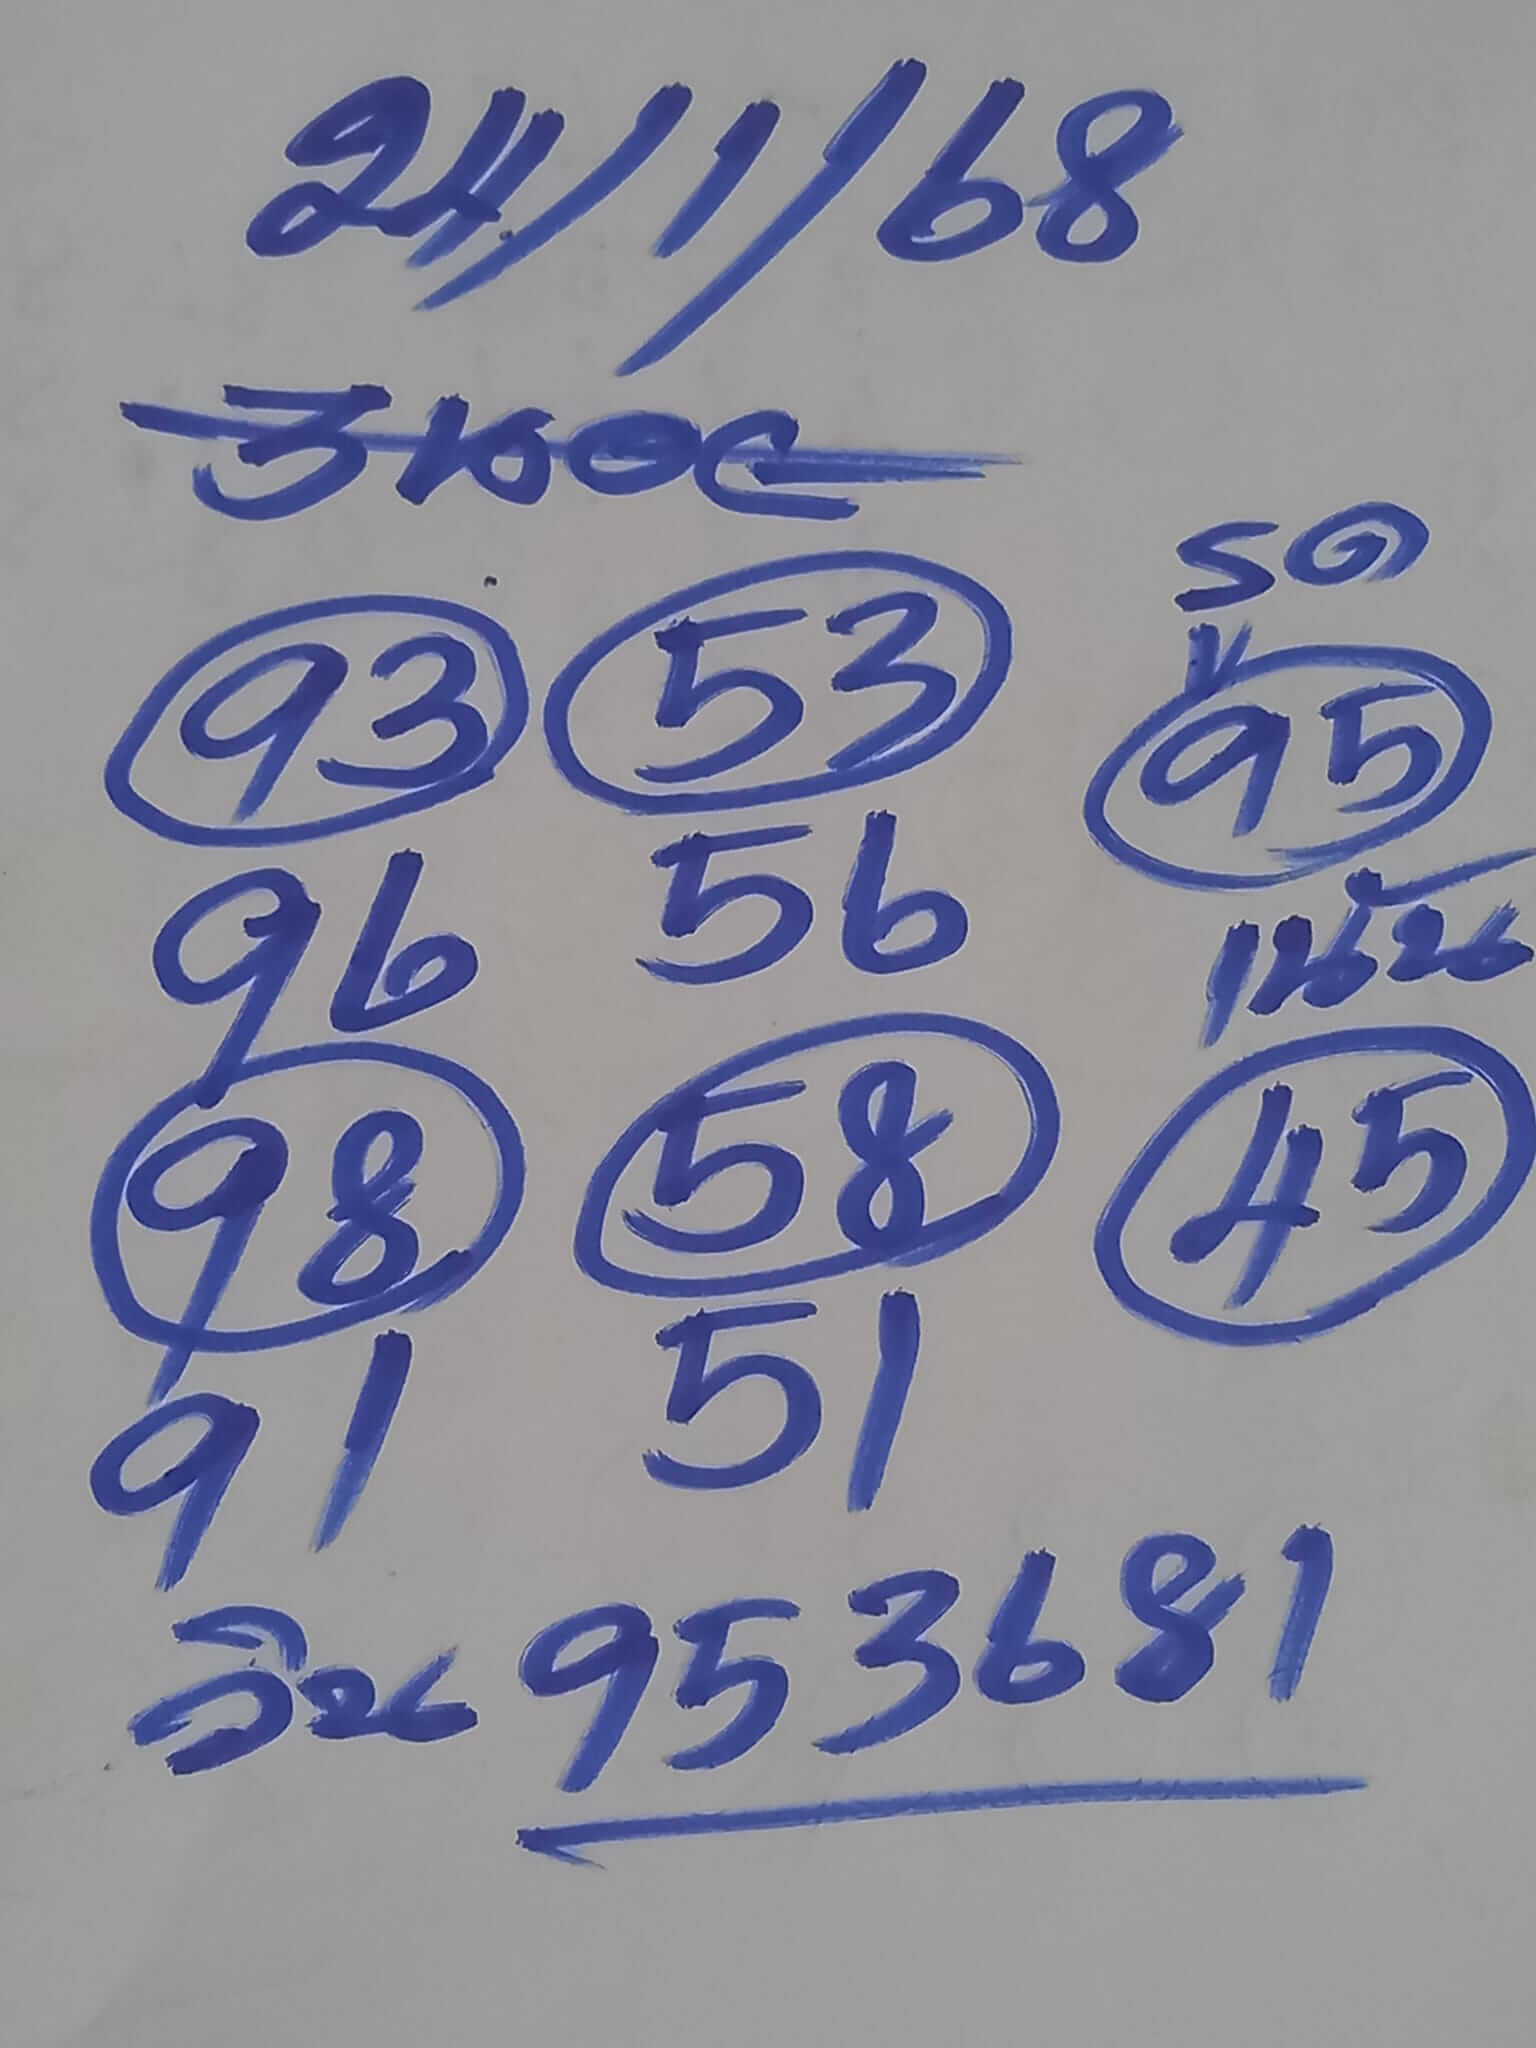 24/1/68
ฮานอย
93 53
รอง
95
96 56
เน้น
98 58 45
91 51
วิน 953681